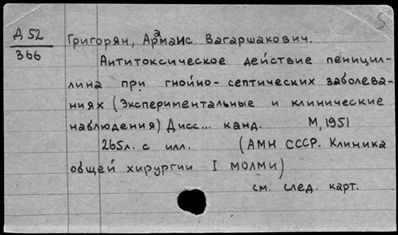 Д 52
366
Григорян, Арзмаис Вагаршакович.
Антитоксическое действие пеницил-
лина при гнойно-септических заболева-
ниях (Экспериментальные и клинические
наблюдения) Дисс... канд. М, 1951
265л. с илл. (АМН СССР. Клиника
общей хирургии I МОЛМИ)
см. след. карт.